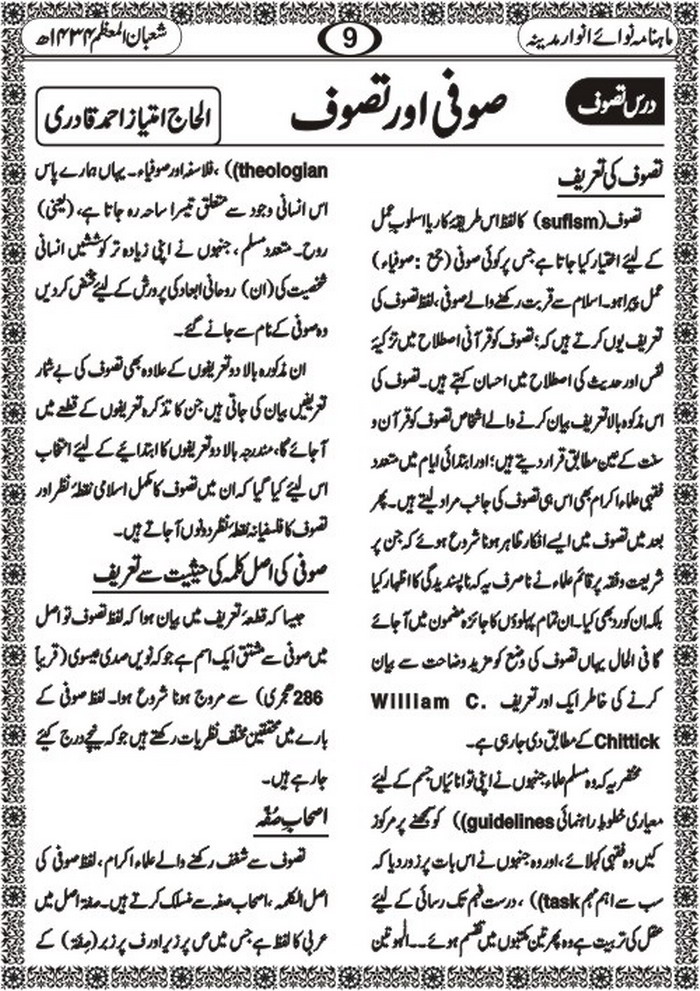 ماہنامہ نوائے انوار مدینہ
9
شعبان المعظم ۱۴۳۴ھ
درس تصوف
صوفی اور تصوف
الحاج امتیاز احمد قادری
تصوف کی تعریف
تصوف (sufism) کا لفظ اس طریقۂ کار یا اسلوب عمل
کے لیئے اختیار کیا جاتا ہے جس پر کوئی صوفی (جمع : صوفیاء)
عمل پیرا ہو۔ اسلام سے قربت رکھنے والے صوفی، لفظ تصوف کی
تعریف یوں کرتے ہیں کہ؛ تصوف کو قرآنی اصطلاح میں تزکیۂ
نفس اور حدیث کی اصطلاح میں احسان کہتے ہیں۔ تصوف کی
اس مذکورہ بالا تعریف بیان کرنے والے اشخاص تصوف کو قرآن و
سنت کے عین مطابق قرار دیتے ہیں؛ اور ابتدائی ایام میں متعدد
فقہی علماء اکرام بھی اس ہی تصوف کی جانب مراد لیتے ہیں۔ پھر
بعد میں تصوف میں ایسے افکار ظاہر ہونا شروع ہوئے کہ جن پر
شریعت وفقہ پر قائم علماء نے نا صرف یہ کہ ناپسندیدگی کا اظہار کیا
بلکہ ان کو رد بھی کیا۔ ان تمام پہلوؤں کا جائزہ مضمون میں آ جائے
گا فی الحال یہاں تصوف کی وضع کو مزید وضاحت سے بیان
کرنے کی خاطر ایک اور تعریف William C.
Chittick کے مطابق دی جا رہی ہے۔
مختصر یہ کہ وہ مسلم علماء جنہوں نے اپنی توانائیاں جسم کے لیئے
معیاری خطوط راہنمائی guidelines)) کو سمجھنے پر مرکوز
کیں وہ فقہی کہلائے، اور وہ جنہوں نے اس بات پر زور دیا کہ
سب سے اہم مہم task))، درست فہم تک رسائی کے لیئے
عقل کی تربیت ہے وہ پھر تین مکتبوں میں تقسم ہوئے۔۔ الہوتین
theologian))، فلاسفہ اور صوفیاء۔ یہاں ہمارے پاس
اس انسانی وجود سے متعلق تیسرا ساحہ رہ جاتا ہے، (یعنی)
روح۔ متعدد مسلم، جنہوں نے اپنی زیادہ تر کوششیں انسانی
شخصیت کی (ان) روحانی ابعاد کی پرورش کے لیئے مختص کر دیں
وہ صوفی کے نام سے جانے گئے۔
ان مذکورہ بالا دو تعریفوں کے علاوہ بھی تصوف کی بے شمار
تعریفیں بیان کی جاتی ہیں جن کا تذکرہ تعریفوں کے قطعے میں
آ جائے گا، مندرجہ بالا دو تعریفوں کا ابتدائیے کے لیئے انتخاب
اس لیئے کیا گیا کہ ان میں تصوف کا مکمل اسلامی نقطۂ نظر اور
تصوف کا فلسفیانہ نقطۂ نظر دونوں آ جاتے ہیں۔
صوفی کی اصل کلمہ کی حیثیت سے تعریف
جیسا کہ قطعۂ تعریف میں بیان ہوا کہ لفظ تصوف تو اصل
میں صوفی سے مشتق ایک اسم ہے جو کہ نویں صدی عیسوی (قریباً
286 ھجری) سے مروج ہونا شروع ہوا۔ لفظ صوفی کے
بارے میں محققین مختلف نظریات رکھتے ہیں جو کہ نیچے درج کیئے
جا رہے ہیں۔
اصحاب صُفّہ
تصوف سے شغف رکھنے والے علماء اکرام، لفظ صوفی کی
اصل الکلمہ، اصحاب صفہ سے منسلک کرتے ہیں۔ صفۃ اصل میں
عربی کا لفظ ہے جس میں ص پر زیر اور ف پر زبر (صِفَۃ) کے